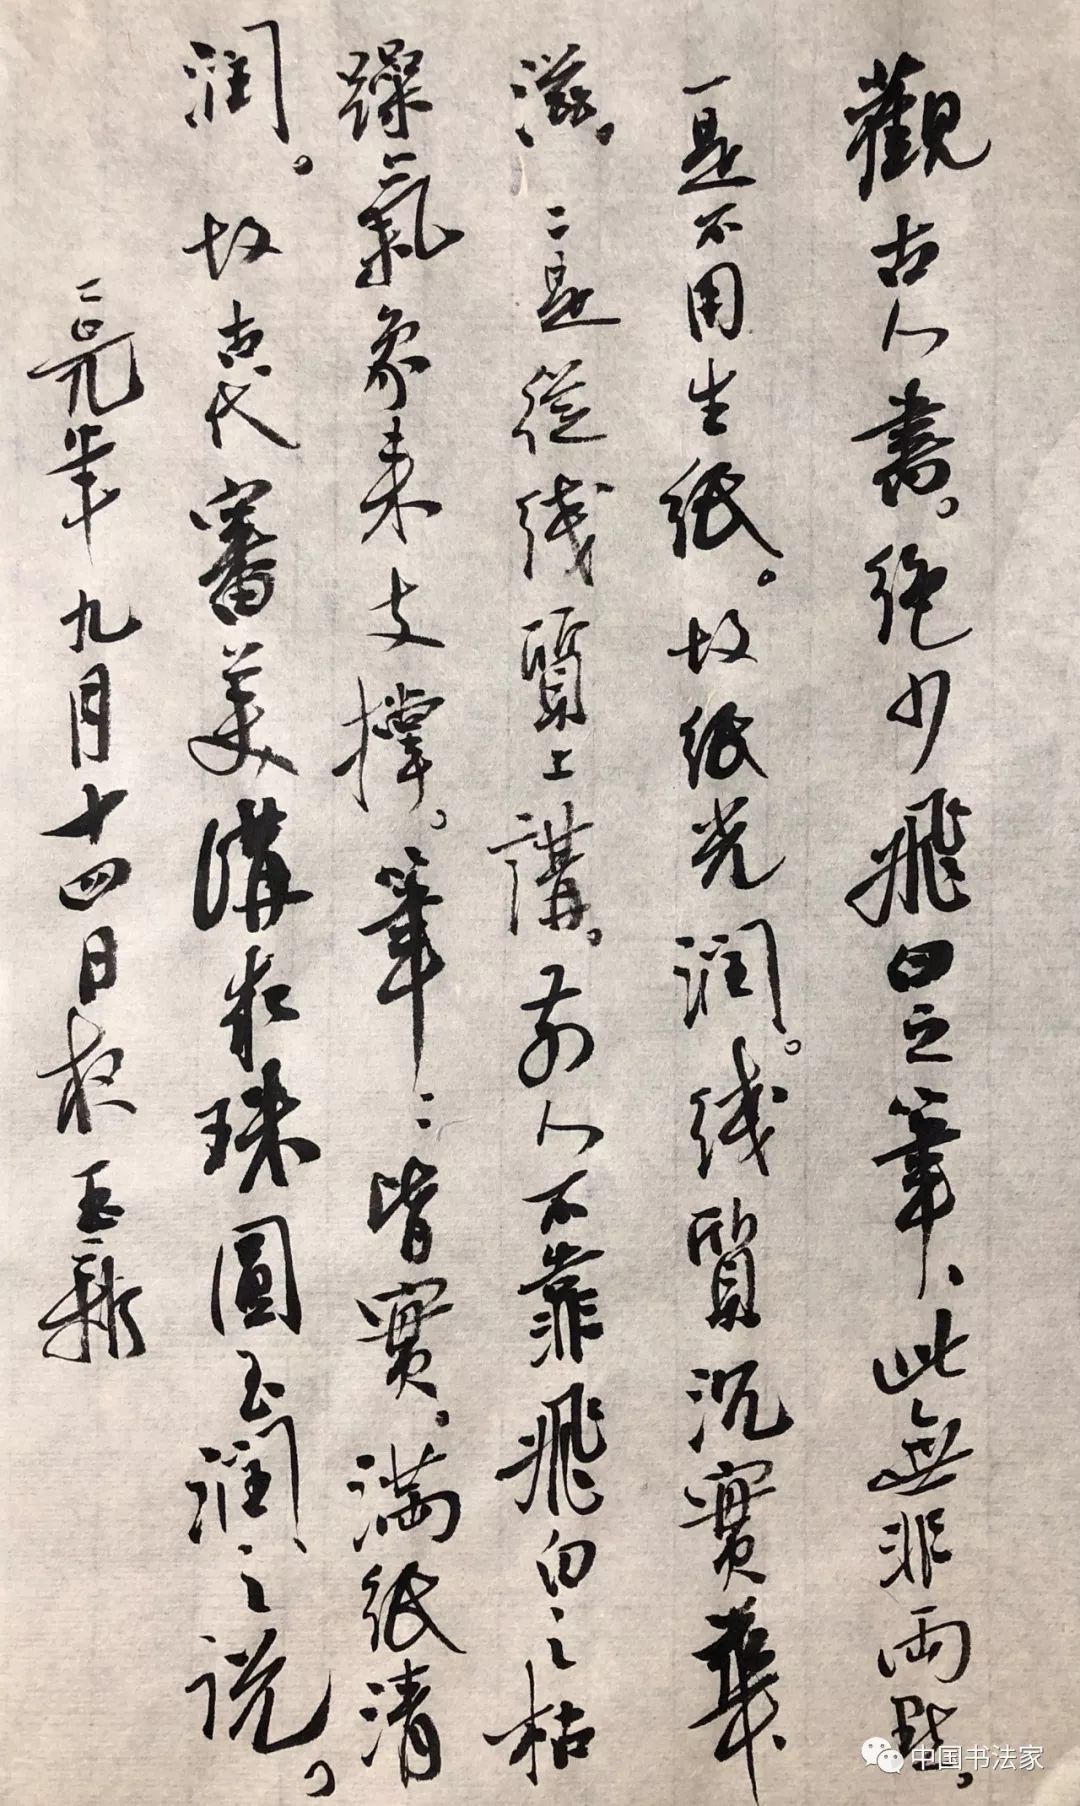 觀古人書。绝少飛白之筆、此無非兩點。
一是不用生纸。故纸光润。线質沉實華
滋。二是從线質上講。前人不靠飛白之枯
躁氣象来支撑。筆二皆實。满纸清
润。故古代審美講求珠圓玉潤之说。
二〇一九年九月十四日夜玉龍
中国书法家